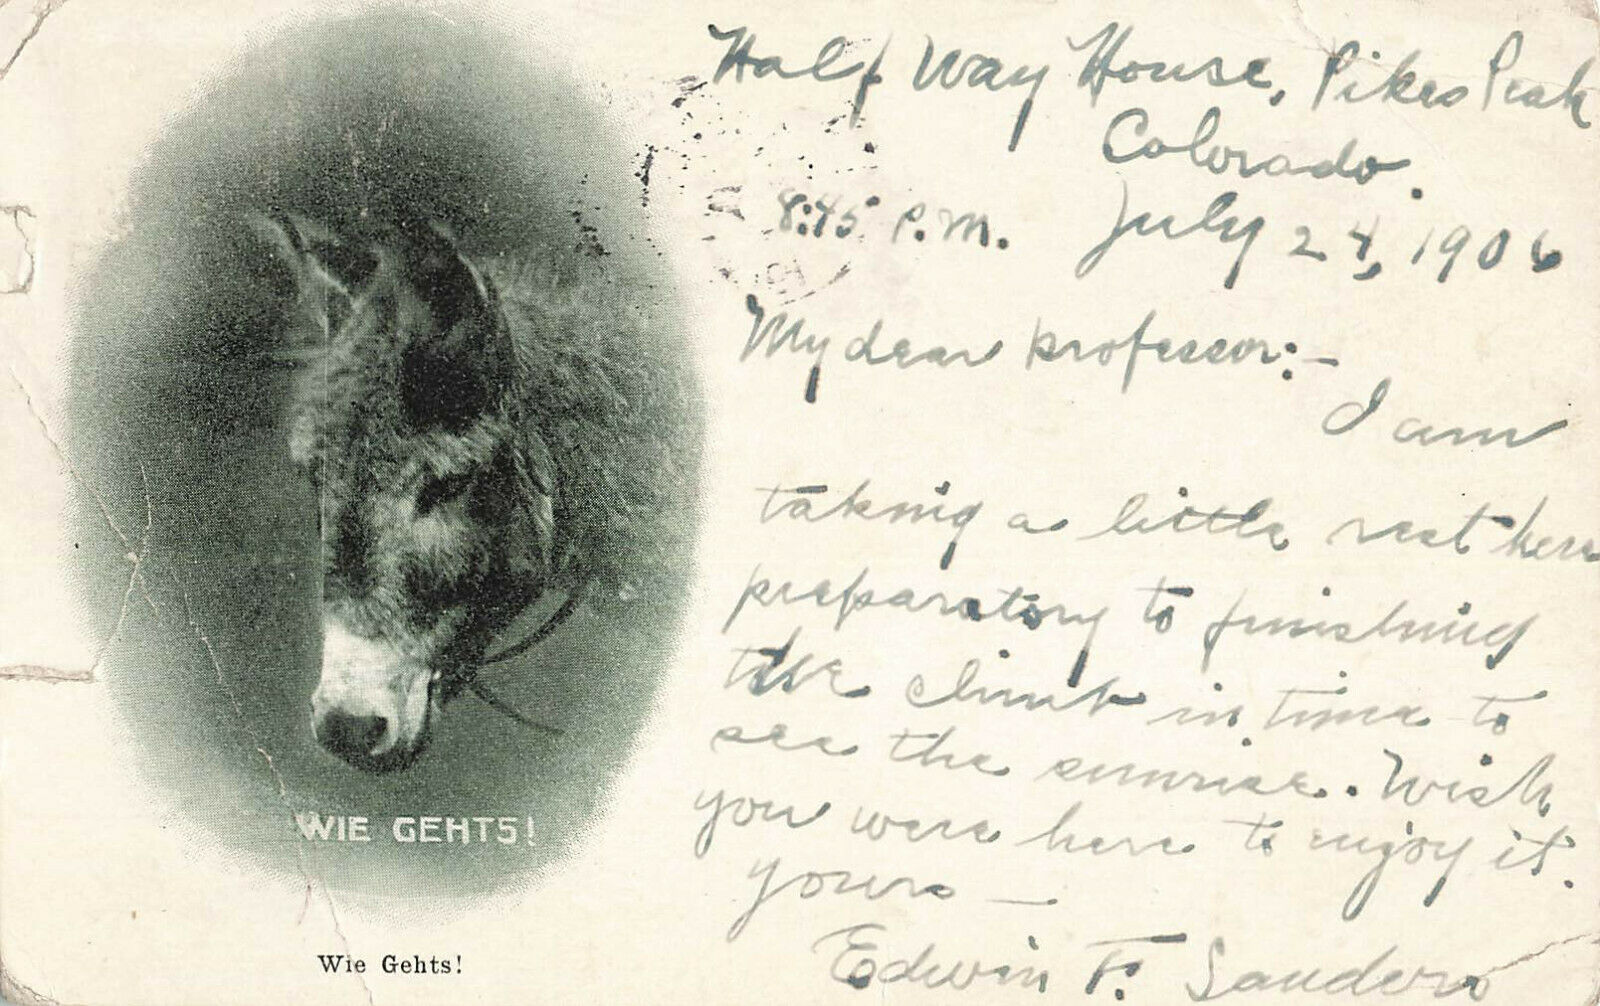 Half Way House, Pikes Peak
Colorado.
8:45 P.M. July 24, 1906
My dear professor:-
I am
taking a little rest here
preparatory to finishing
the climb in time to
see the sunrise. Wish
you were here to enjoy it.
yours —
Edwin F. Sanders
WIE GEHTS!
Wie Gehts!